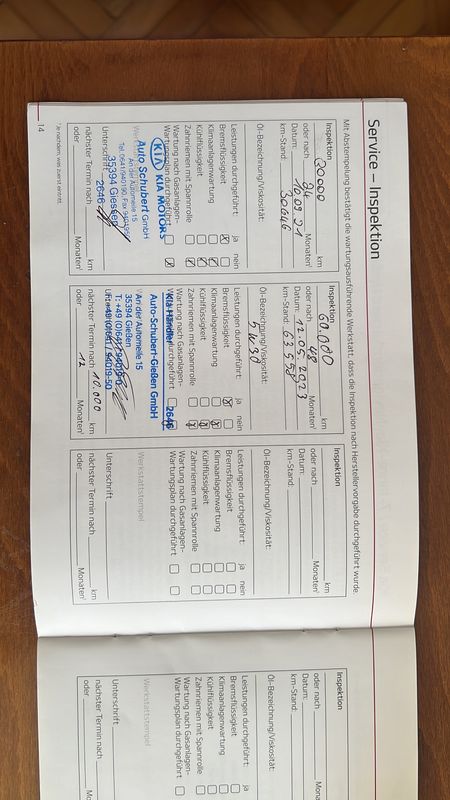 Service – Inspektion
Mit Abstempelung bestätigt die wartungsausführende Werkstatt, dass die Inspektion nach Herstellervorgabe durchgeführt wurde.
Inspektion
30000 km
oder nach 24 Monaten¹
Datum: 10.09.21
km-Stand: 30646
Öl-Bezeichnung/Viskosität:
Leistungen durchgeführt: ja nein
Bremsflüssigkeit
Klimaanlagenwartung
Kühlflüssigkeit
Zahnriemen mit Spannrolle
Wartung nach Gasanlagen-
Wartungsplan durchgeführt
KIA KIA MOTORS
Auto Schubert GmbH
An der Automeile 15
35394 Giessen
2646
Unterschrift
nächster Termin nach km
oder Monaten¹
Inspektion
60.000 km
oder nach 48 Monaten¹
Datum: 12.05.2023
km-Stand: 63558
Öl-Bezeichnung/Viskosität:
5W30
Leistungen durchgeführt: ja nein
Bremsflüssigkeit
Klimaanlagenwartung
Kühlflüssigkeit
Zahnriemen mit Spannrolle
Wartung nach Gasanlagen-
durchgeführt
Kia Händler 2646
Auto-Schubert-Gießen GmbH
An der Automeile 15
35394 Gießen
nächster Termin nach 90.000 km
oder 12 Monaten¹
Inspektion
km
oder nach Monaten¹
Datum:
km-Stand:
Öl-Bezeichnung/Viskosität:
Leistungen durchgeführt: ja nein
Bremsflüssigkeit
Klimaanlagenwartung
Kühlflüssigkeit
Zahnriemen mit Spannrolle
Wartung nach Gasanlagen-
Wartungsplan durchgeführt
Werkstattstempel
Unterschrift
nächster Termin nach km
oder Monaten¹
¹ Je nachdem was zuerst eintritt.
14
Inspektion
oder nach Mona
Datum:
km-Stand:
Öl-Bezeichnung/Viskosität:
Leistungen durchgeführt: ja
Bremsflüssigkeit
Klimaanlagenwartung
Kühlflüssigkeit
Zahnriemen mit Spannrolle
Wartung nach Gasanlagen-
Wartungsplan durchgeführt
Werkstattstempel
Unterschrift
nächster Termin nach
oder Mo